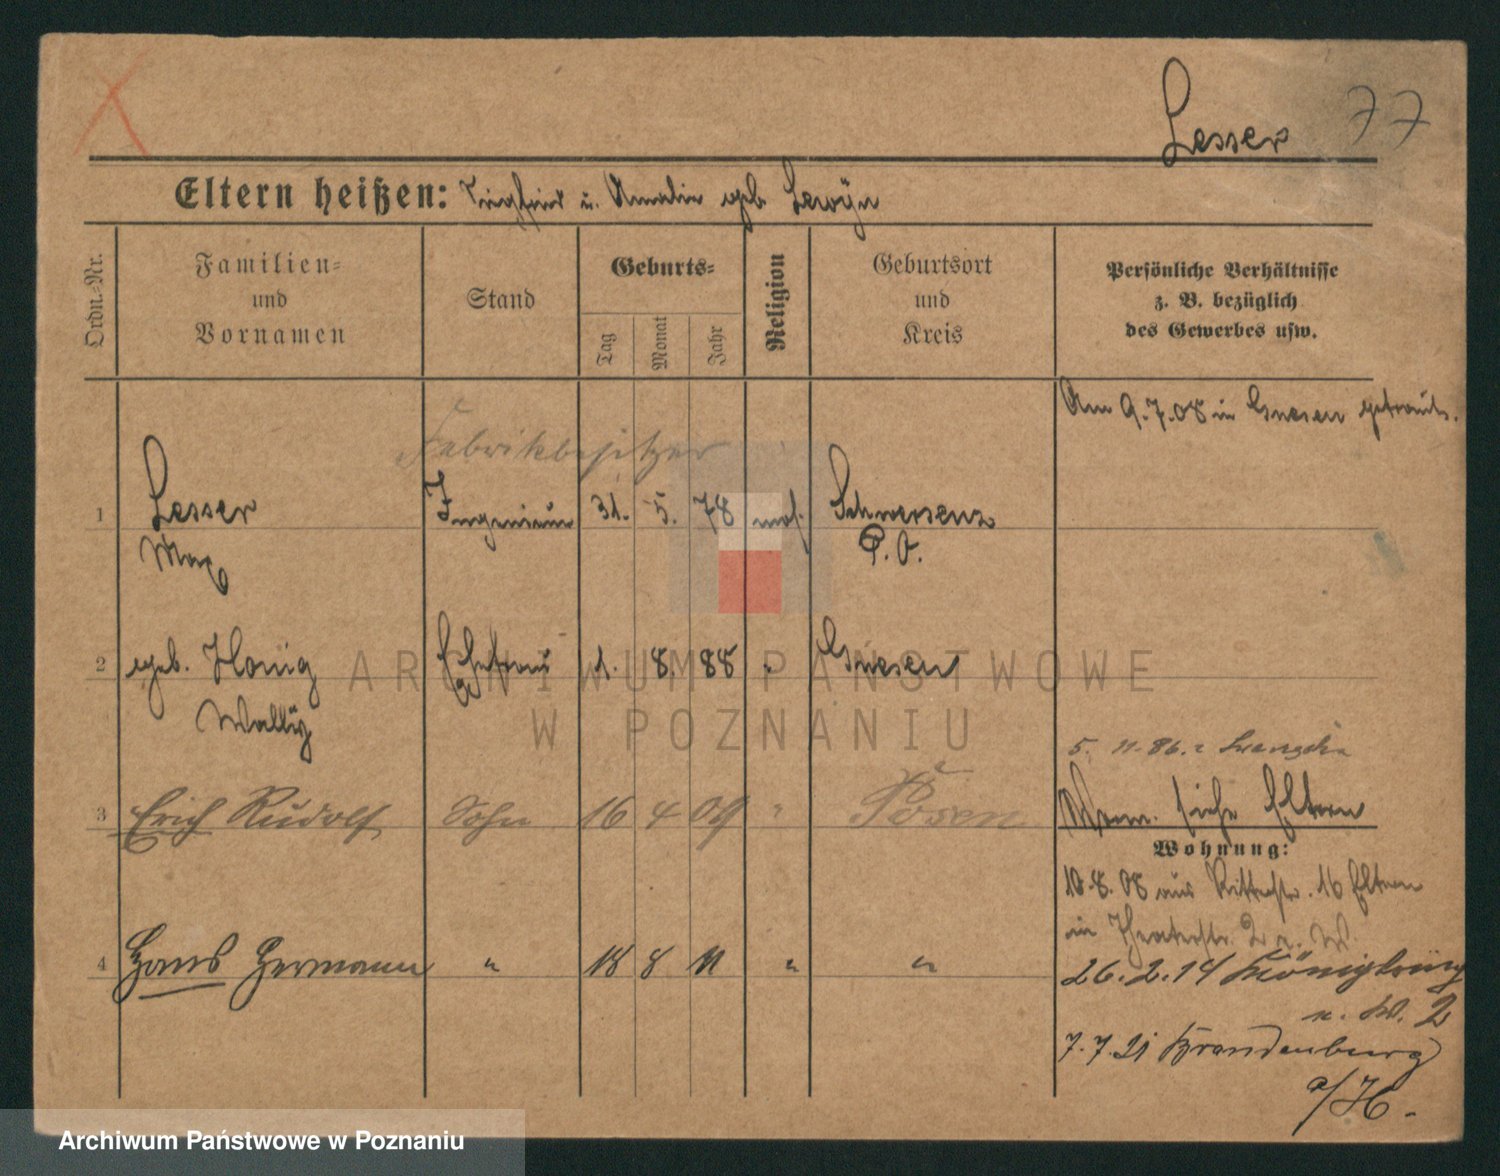 Lesser 77
Eltern heißen: Siegfried u. Amalie geb. Lewÿn
Ordn.-Nr.
Familien-
und
Vornamen
Stand
Geburts-
Tag
Monat
Jahr
Religion
Geburtsort
und
Kreis
Persönliche Verhältnisse
z. B. bezüglich
des Gewerbes usw.
Am 9.7.08 in Gnesen getraut.
Fabrikbesitzer
1 Lesser Ingenieur 31. 5. 78 mos. Schwersenz
Max P. O.
2 geb. Honig Ehefrau 1. 8. 88 " Gnesen
Wallÿ
5. 11. 86.
3 Erich Rudolf Sohn 16 4 09 " Posen
siehe Eltern
Wohnung:
10.8.08 aus Ritterstr. 16 Eltern
in Theaterstr. 2
4 Hans Hermann " 18 8 11 " "
26.2.14
7.7.21 Brandenburg
a/H.
ARCHIWUM PAŃSTWOWE
W POZNANIU
Archiwum Państwowe w Poznaniu